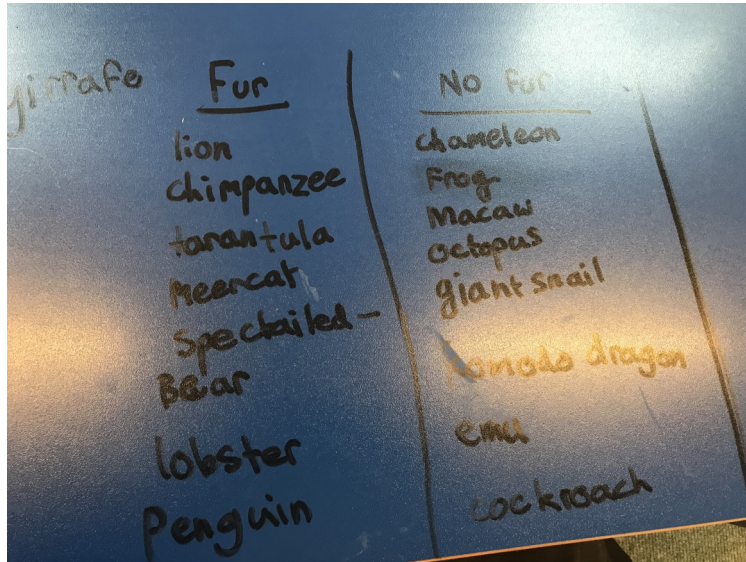 girrafe
Fur
lion
chimpanzee
tarantula
Meercat
Spectailed-
Bear
lobster
Penguin
No fur
chameleon
Frog
Macaw
octopus
giant snail
komodo dragon
emu
cockroach